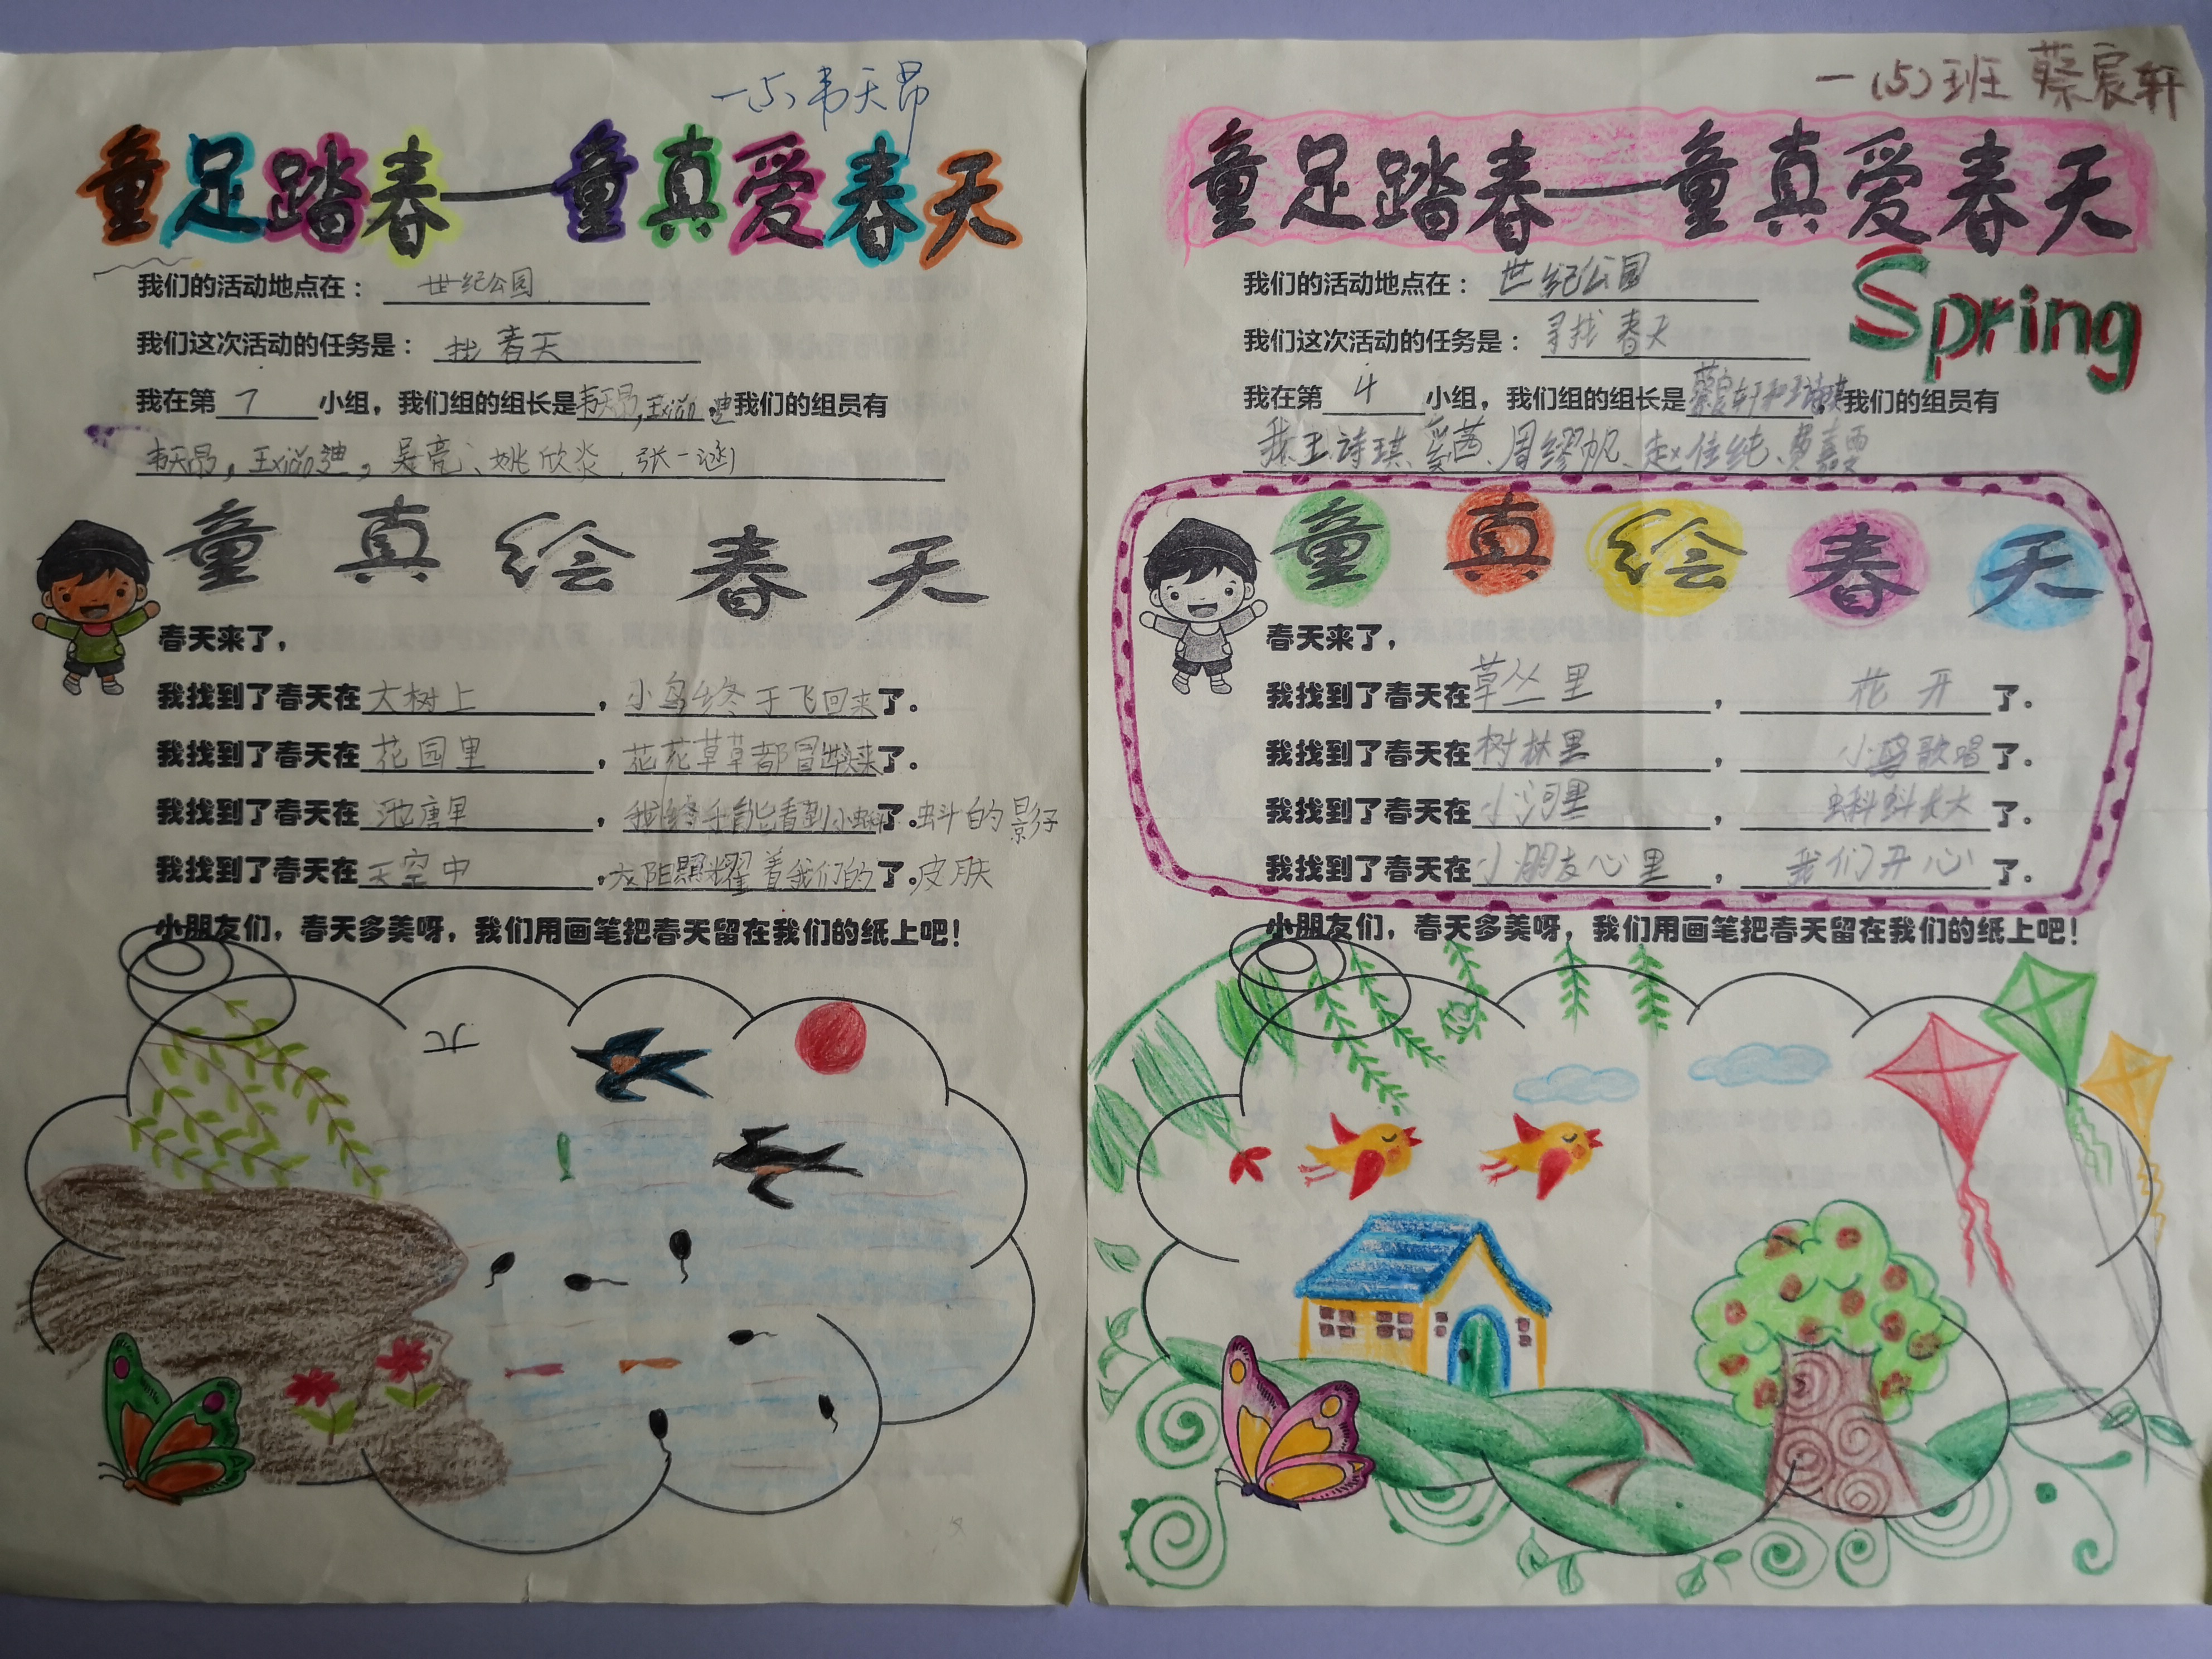 一(5) 韦天昂
童足踏春——童真爱春天
我们的活动地点在： 世纪公园
我们这次活动的任务是： 找 春天
我在第 7 小组，我们组的组长是韦天昂, 我们的组员有
韦天昂, 吴亮、姚欣炎、张一涵
童真绘春天
春天来了，
我找到了春天在大树上，小鸟终于飞回来了。
我找到了春天在花园里，花花草草都冒出来了。
我找到了春天在池唐里，我终于能看到小蝌了。蚪的影子
我找到了春天在天空中，太阳照耀着我们的了。皮肤
小朋友们，春天多美呀，我们用画笔把春天留在我们的纸上吧！
一(5)班 蔡宸轩
童足踏春——童真爱春天
Spring
我们的活动地点在： 世纪公园
我们这次活动的任务是： 寻找 春天
我在第 4 小组，我们组的组长是蔡宸轩和王诗琪我们的组员有
我、王诗琪、周缪帆、赵佳纯、费嘉雯
童真绘春天
春天来了，
我找到了春天在草丛里，花开了。
我找到了春天在树林里，小鸟歌唱了。
我找到了春天在小河里，蝌蚪长大了。
我找到了春天在小朋友心里，我们开心了。
小朋友们，春天多美呀，我们用画笔把春天留在我们的纸上吧！